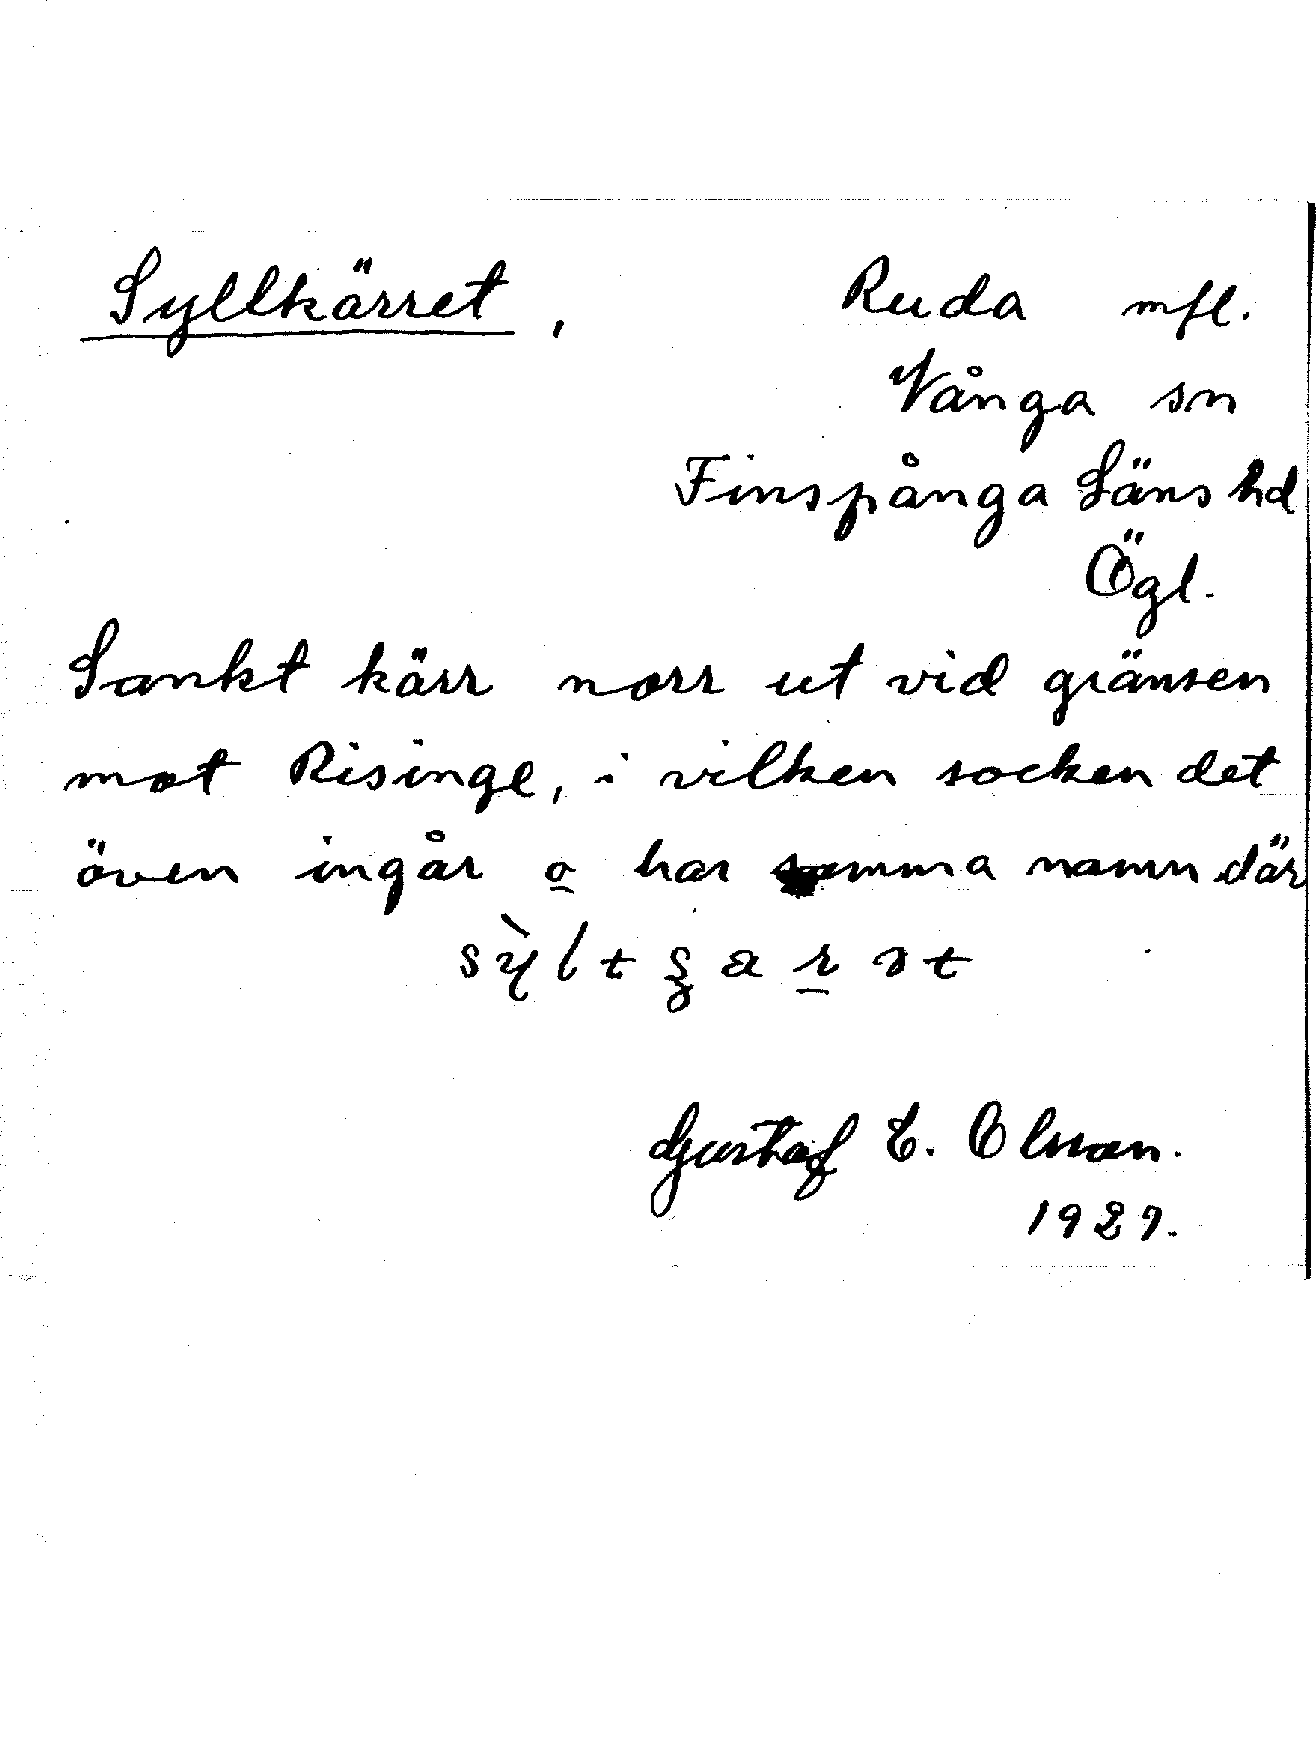 Syllkärret,
Ruda mfl.
Vånga sn
Finspånga Läns hd
Ögl.
Sankt kärr norr ut vid gränsen
mot Risinge, i vilken socken det
även ingår o har samma namn där
Gustaf E. Olsson.
1927.